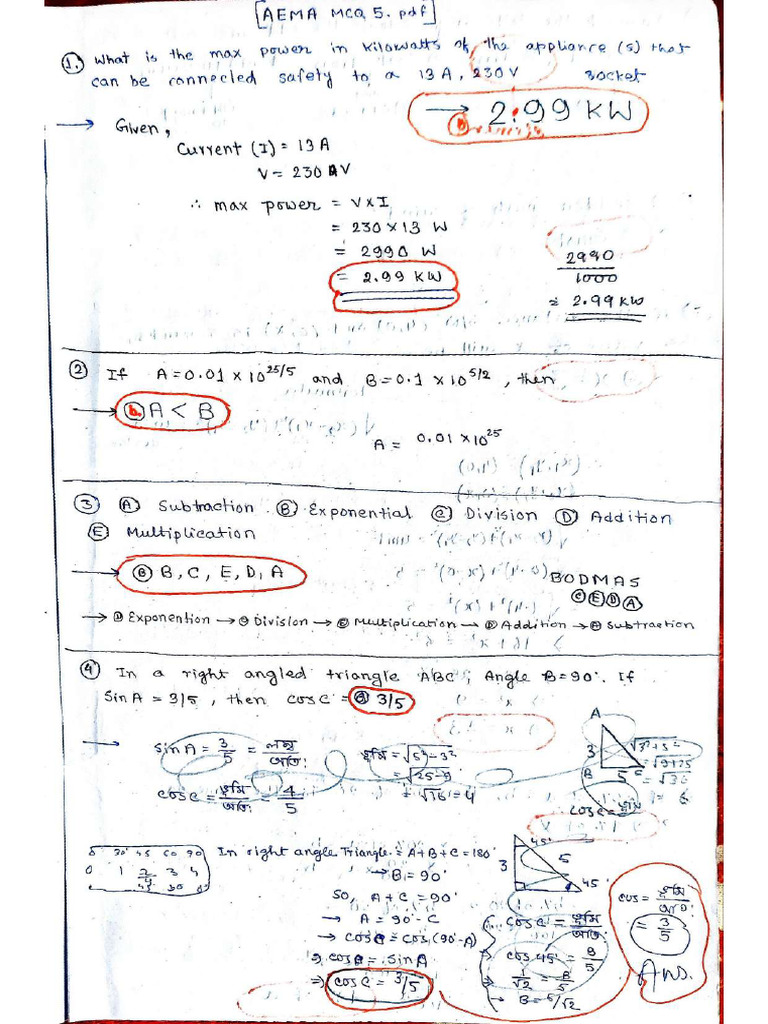 [AEMA MCQ 5. pdf]
1. What is the max power in kilowatts of the appliance (s) that
can be connected safety to a 13 A, 230 V socket
→ 2.99 KW
→ Given,
Current (I) = 13 A
V = 230 V
∴ max power = V×I
= 230 × 13 W
= 2990 W
= 2.99 KW
2990
1000
= 2.99 KW
② If A = 0.01 × 10^25/5 and B = 0.1 × 10^5/2, then
→ b. A < B
A = 0.01 × 10^25
③ Ⓐ Subtraction Ⓑ Exponential Ⓒ Division Ⓓ Addition
Ⓔ Multiplication
→ Ⓑ B, C, E, D, A
BODMAS
Ⓒ Ⓔ Ⓓ Ⓐ
→ Exponention → Division → Multiplication → Addition → Subtraction
④ In a right angled triangle ABC, Angle B = 90°. If
Sin A = 3/5, then cos C = 3/5
→ Sin A = 3/5 = লম্ব/অতি:
ভূমি = √5²-3²
= √25-9
= √16 = 4
cos C = ভূমি/অতি: = 4/5
A
3
B 5 C
√3²+5²
= √9+25
= √3
= 6
cos C = ভূমি
In right angle Triangle = A+B+C = 180°
→ B = 90°
So, A + C = 90°
→ A = 90° - C
→ cos C = cos (90° - A)
= sin A
⇒ cos C = 3/5
0 30° 45 60 90
0 1 2 3 4
45°
3 5
45°
cos C = ভূমি/অতি:
→ cos 45° = B/5
→ 1/√2 = B/5
→ B = 5/√2
cos = ভূমি/অতি:
= 3/5
Ans.